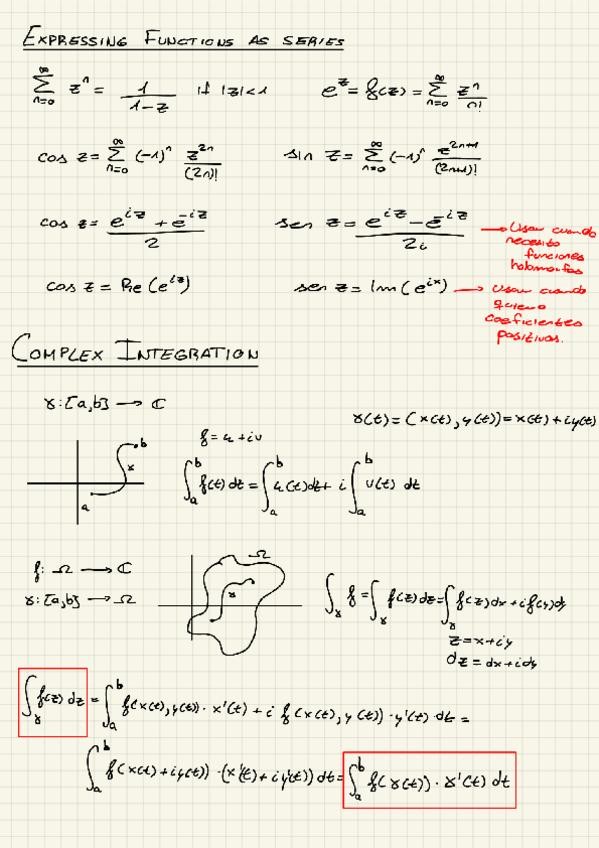 EXPRESSING FUNCTIONS AS SERIES
∑_{n=0}^{∞} z^n = 1/(1-z) if |z|<1    e^z = f(z) = ∑_{n=0}^{∞} z^n/n!
cos z = ∑_{n=0}^{∞} (-1)^n z^{2n}/(2n)!    sin z = ∑_{n=0}^{∞} (-1)^n z^{2n+1}/(2n+1)!
cos z = (e^{iz} + e^{-iz})/2    sen z = (e^{iz} - e^{-iz})/2i
→ Usar cuando
necesito
funciones
holomorfas
cos z = Re(e^{iz})    sen z = Im(e^{ix})
→ Usar cuando
quiero
coeficientes
positivos.
COMPLEX INTEGRATION
γ: [a,b] → ℂ
γ(t) = (x(t), y(t)) = x(t) + iy(t)
b
γ
a
f = u + iv
∫_a^b f(t) dt = ∫_a^b u(t) dt + i ∫_a^b v(t) dt
f: Ω → ℂ
γ: [a,b] → Ω
Ω
γ
∫_γ f = ∫_γ f(z) dz = ∫_γ f(z) dx + i f(y) dy
z = x + iy
dz = dx + idy
∫_γ f(z) dz = ∫_a^b f(x(t), y(t)) · x'(t) + i f(x(t), y(t)) · y'(t) · dt =
∫_a^b f(x(t) + iy(t)) · (x'(t) + iy'(t)) dt = ∫_a^b f(γ(t)) · γ'(t) dt